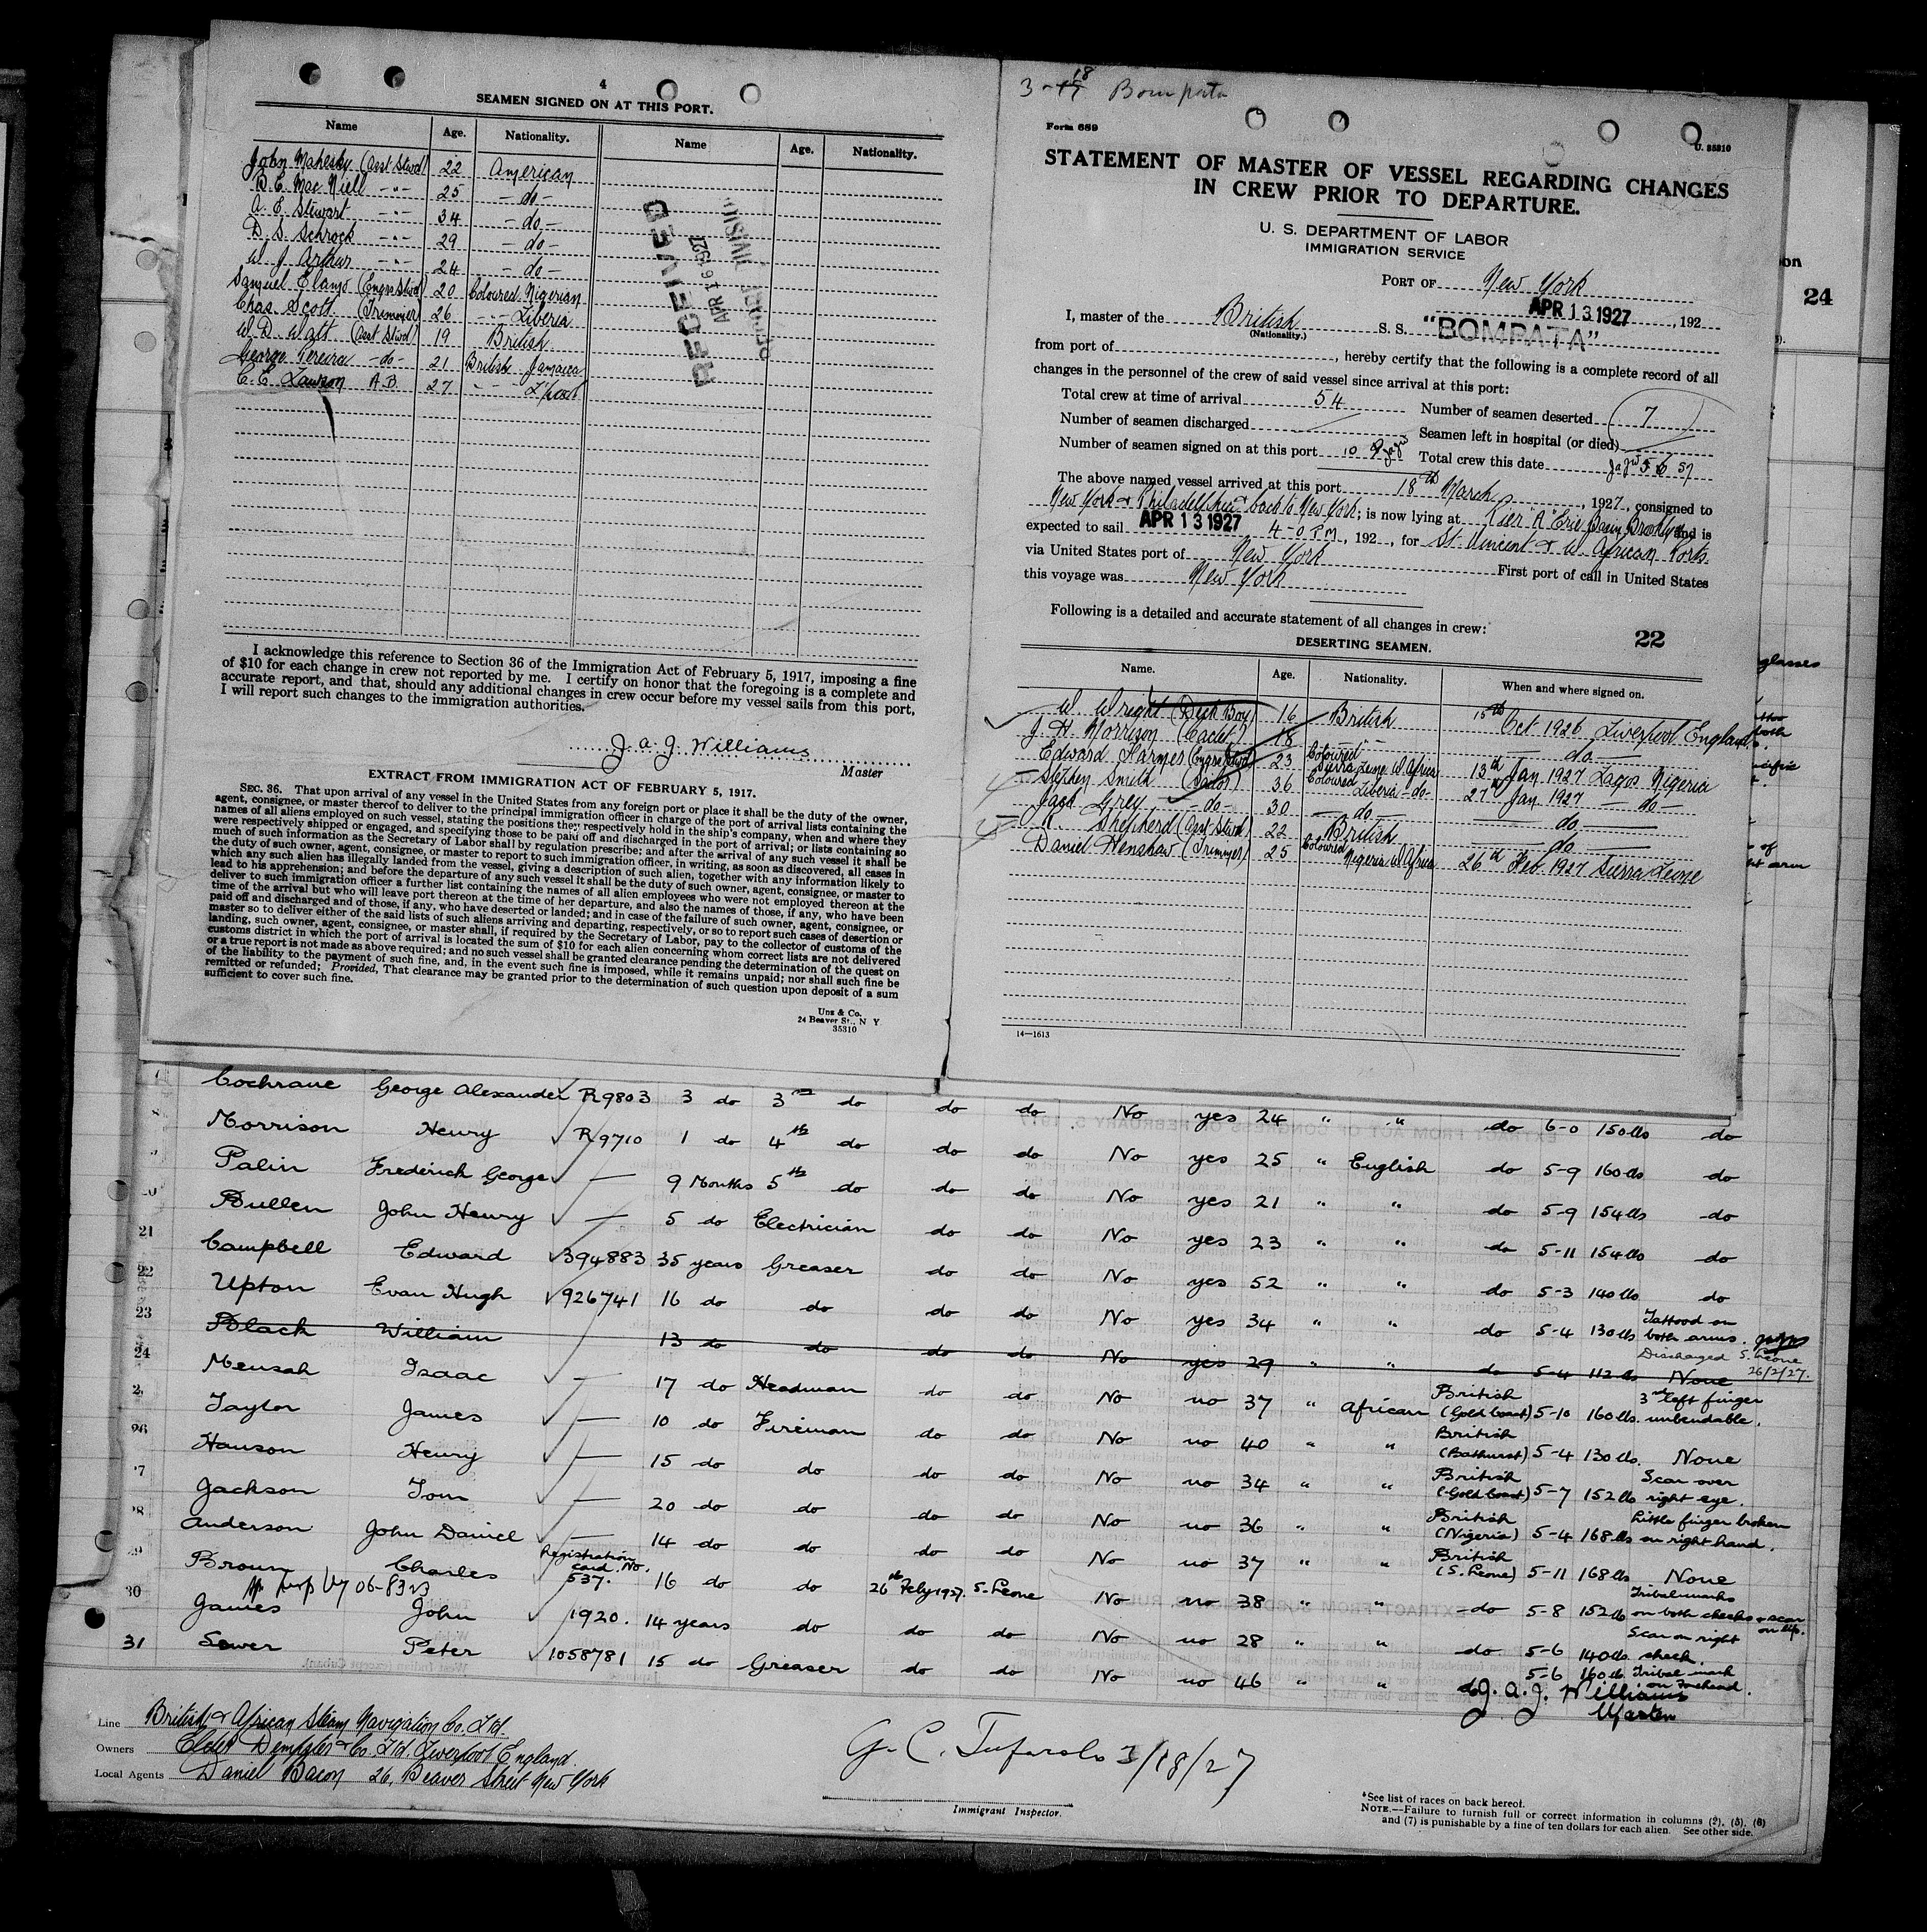 4
SEAMEN SIGNED ON AT THIS PORT.
Name Age. Nationality. Name Age. Nationality.
John Mahesky (Asst Stwd) 22 American
D. E. Mac Niell -"- 25 - do -
A. E. Stewart -"- 34 - do -
D. S. Schrock -"- 29 - do -
W. J. Arthur -"- 24 - do -
Samuel Elamo (Engrs Stwd) 20 Coloured Nigerian
Chas. Scott (Trimmer) 26 -"- Liberia
W. D. Watt (Asst Stwd) 19 British
George Pereira -do- 21 British Jamaica
C. E. Lawson A.B. 27 -"- L'pool
RECEIVED
APR 16 1927
DIVISION
I acknowledge this reference to Section 36 of the Immigration Act of February 5, 1917, imposing a fine
of $10 for each change in crew not reported by me. I certify on honor that the foregoing is a complete and
accurate report, and that, should any additional changes in crew occur before my vessel sails from this port,
I will report such changes to the immigration authorities.
J. A. J. Williams
Master
EXTRACT FROM IMMIGRATION ACT OF FEBRUARY 5, 1917.
SEC. 36. That upon arrival of any vessel in the United States from any foreign port or place it shall be the duty of the owner,
agent, consignee, or master thereof to deliver to the principal immigration officer in charge of the port of arrival lists containing the
names of all aliens employed on such vessel, stating the positions they respectively hold in the ship's company, when and where they
were respectively shipped or engaged, and specifying those to be paid off and discharged in the port of arrival; or lists containing so
much of such information as the Secretary of Labor shall by regulation prescribe; and after the arrival of any such vessel it shall be
the duty of such owner, agent, consignee, or master to report to such immigration officer, in writing, as soon as discovered, all cases in
which any such alien has illegally landed from the vessel, giving a description of such alien, together with any information likely to
lead to his apprehension; and before the departure of any such vessel it shall be the duty of such owner, agent, consignee, or master to
deliver to such immigration officer a further list containing the names of all alien employees who were not employed thereon at the
time of the arrival but who will leave port thereon at the time of her departure, and also the names of those, if any, who have been
paid off and discharged and of those, if any, who have deserted or landed; and in case of the failure of such owner, agent, consignee, or
master so to deliver either of the said lists of such aliens arriving and departing, respectively, or so to report such cases of desertion or
landing, such owner, agent, consignee, or master shall, if required by the Secretary of Labor, pay to the collector of customs of the
customs district in which the port of arrival is located the sum of $10 for each alien concerning whom correct lists are not delivered
or a true report is not made as above required; and no such vessel shall be granted clearance pending the determination of the quest on
of the liability to the payment of such fine, and, in the event such fine is imposed, while it remains unpaid; nor shall such fine be
remitted or refunded; Provided, That clearance may be granted prior to the determination of such question upon deposit of a sum
sufficient to cover such fine.
Unz & Co.
24 Beaver St., N Y
35310
3-17 18 Bompata
Form 689
U. 35310
STATEMENT OF MASTER OF VESSEL REGARDING CHANGES
IN CREW PRIOR TO DEPARTURE.
U. S. DEPARTMENT OF LABOR
IMMIGRATION SERVICE
PORT OF New York
APR 13 1927, 192
I, master of the British S. S. "BOMPATA"
(Nationality.)
from port of , hereby certify that the following is a complete record of all
changes in the personnel of the crew of said vessel since arrival at this port:
Total crew at time of arrival 54 Number of seamen deserted 7
Number of seamen discharged Seamen left in hospital (or died)
Number of seamen signed on at this port 10 Total crew this date 57
The above named vessel arrived at this port 18th March, 1927, consigned to
New York & Philadelphia & back to New York; is now lying at Pier "A" Erie Basin Brooklyn and is
expected to sail APR 13 1927 4-0 PM, 192 , for St. Vincent & W. African Ports
via United States port of New York First port of call in United States
this voyage was New York
Following is a detailed and accurate statement of all changes in crew:
22
DESERTING SEAMEN.
Name. Age. Nationality. When and where signed on.
W. Wright (Deck Boy) 16 British 15th Oct 1926 Liverpool England
J. H. Morrison (Cadet) 18 -"- do
Edward Harmer (Engrs Stwd) 23 Coloured Sierra Leone W Africa 13th Jan 1927 Lagos Nigeria
Stephen Smith (Sailor) 36 Coloured Liberia -do- 27th Jan 1927 - do -
Jack Grey -do- 30 - do - do
R. Shepherd (Asst Stwd) 22 British do
Daniel Henshaw (Trimmer) 25 Coloured Nigeria W Africa 26th Feb 1927 Sierra Leone
14—1613
24
glasses
Cochrane George Alexander R9803 3 do 3rd do do do No yes 24 " " do 6-0 150 lbs do
Morrison Henry R9710 1 do 4th do do do No yes 25 " English do 5-9 160 lbs do
Palin Frederick George — 9 Months 5th do do do No yes 21 " " do 5-9 154 lbs do
20 Bullen John Henry — 5 do Electrician do do No yes 23 " " do 5-11 154 lbs do
21 Campbell Edward 394883 35 years Greaser do do No yes 52 " " do 5-3 140 lbs do
22 Upton Evan Hugh 926741 16 do do do do No yes 34 " " do 5-4 130 lbs Tattood on both arms.
23 Black William 13 do do do do No yes 29 " " do 5-4 112 lbs None Discharged S. Leone 26/2/27.
24 Mensah Isaac — 17 do Headman do do No no 37 " African British (Gold Coast) 5-10 160 lbs. 3rd left finger unbendable.
Taylor James — 10 do Fireman do do No no 40 " " British (Bathurst) 5-4 130 lbs. None
26 Hanson Henry — 15 do do do do No no 34 " " British (Gold Coast) 5-7 152 lbs Scar over right eye.
Jackson Tom — 20 do do do do No no 36 " " British (Nigeria) 5-4 168 lbs Little finger broken on right hand.
Anderson John Daniel — 14 do do do do No no 37 " " British (S. Leone) 5-11 168 lbs None
29 Brown Charles Registration card No. 537. 16 do do 26th Feby 1927. S. Leone No no 38 " " do 5-8 152 lb Tribal marks on both cheeks & scar on lip.
30 James John 1920. 14 years do do do No no 28 " " do 5-6 140 lb. Scar on right cheek.
31 Sower Peter 1058781 15 do Greaser do do No no 46 " " do 5-6 160 lb. Tribal mark on forehead.
J. A. J. Williams
Master
Line British & African Steam Navigation Co. Ltd.
Owners Elder Dempster & Co. Ltd. Liverpool England
Local Agents Daniel Bacon 26, Beaver Street New York
3/18/27
Immigrant Inspector.
*See list of races on back hereof.
NOTE.—Failure to furnish full or correct information in columns (2), (5), (6)
and (7) is punishable by a fine of ten dollars for each alien. See other side.